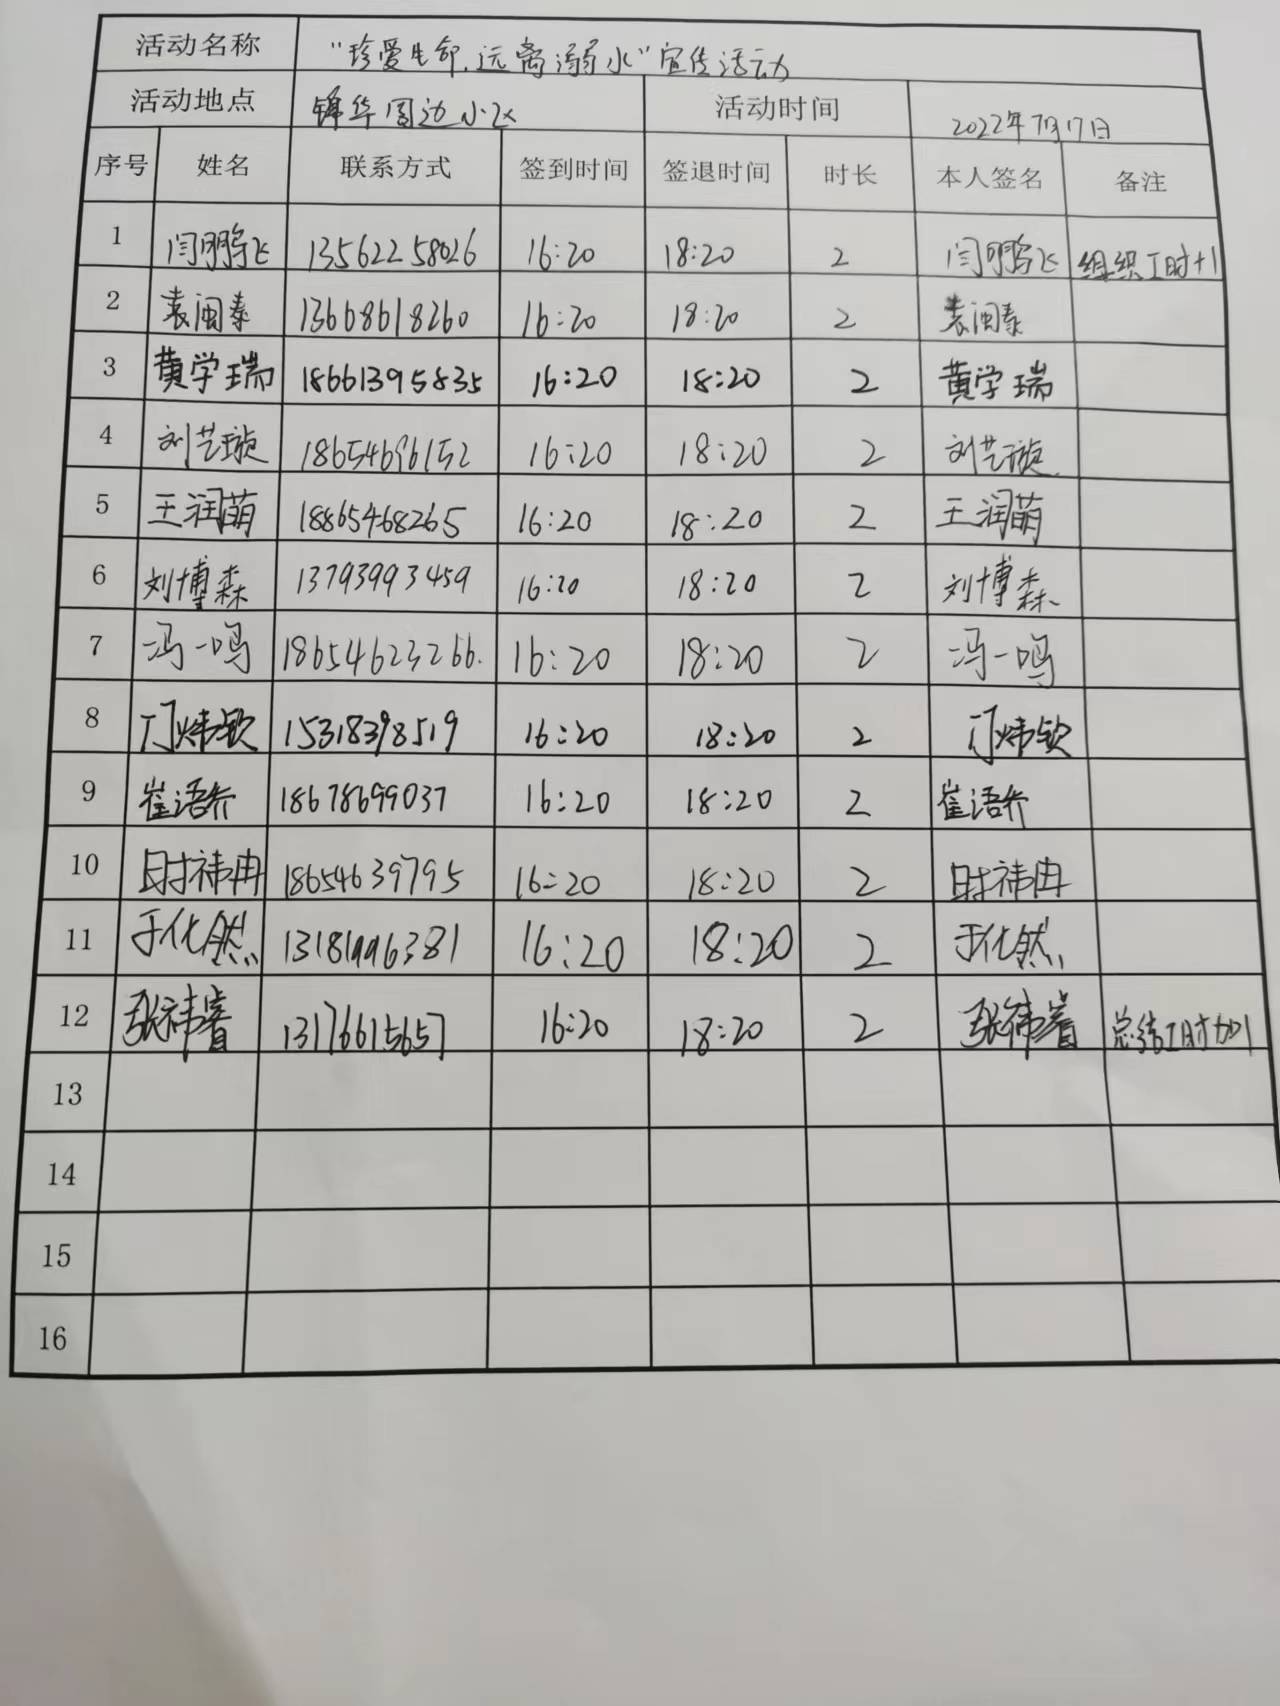 活动名称 “珍爱生命.远离溺水”宣传活动
活动地点 锦华周边小区 活动时间 2022年7月17日
序号 姓名 联系方式 签到时间 签退时间 时长 本人签名 备注
1 闫鹏飞 13562258026 16:20 18:20 2 闫鹏飞 组织工时+1
2 袁闽泰 13668618260 16:20 18:20 2 袁闽泰
3 黄学瑞 18661395835 16:20 18:20 2 黄学瑞
4 刘艺璇 18654696152 16:20 18:20 2 刘艺璇
5 王润萌 18865468265 16:20 18:20 2 王润萌
6 刘博森 13793993459 16:20 18:20 2 刘博森
7 冯一鸣 18654623266. 16:20 18:20 2 冯一鸣
8 门炜钦 15318398519 16:20 18:20 2 门炜钦
9 崔语乔 18678699037 16:20 18:20 2 崔语乔
10 时祎冉 18654639795 16:20 18:20 2 时祎冉
11 于化然 13181996381 16:20 18:20 2 于化然
12 张祎睿 13176615657 16:20 18:20 2 张祎睿 总结工时加1
13
14
15
16